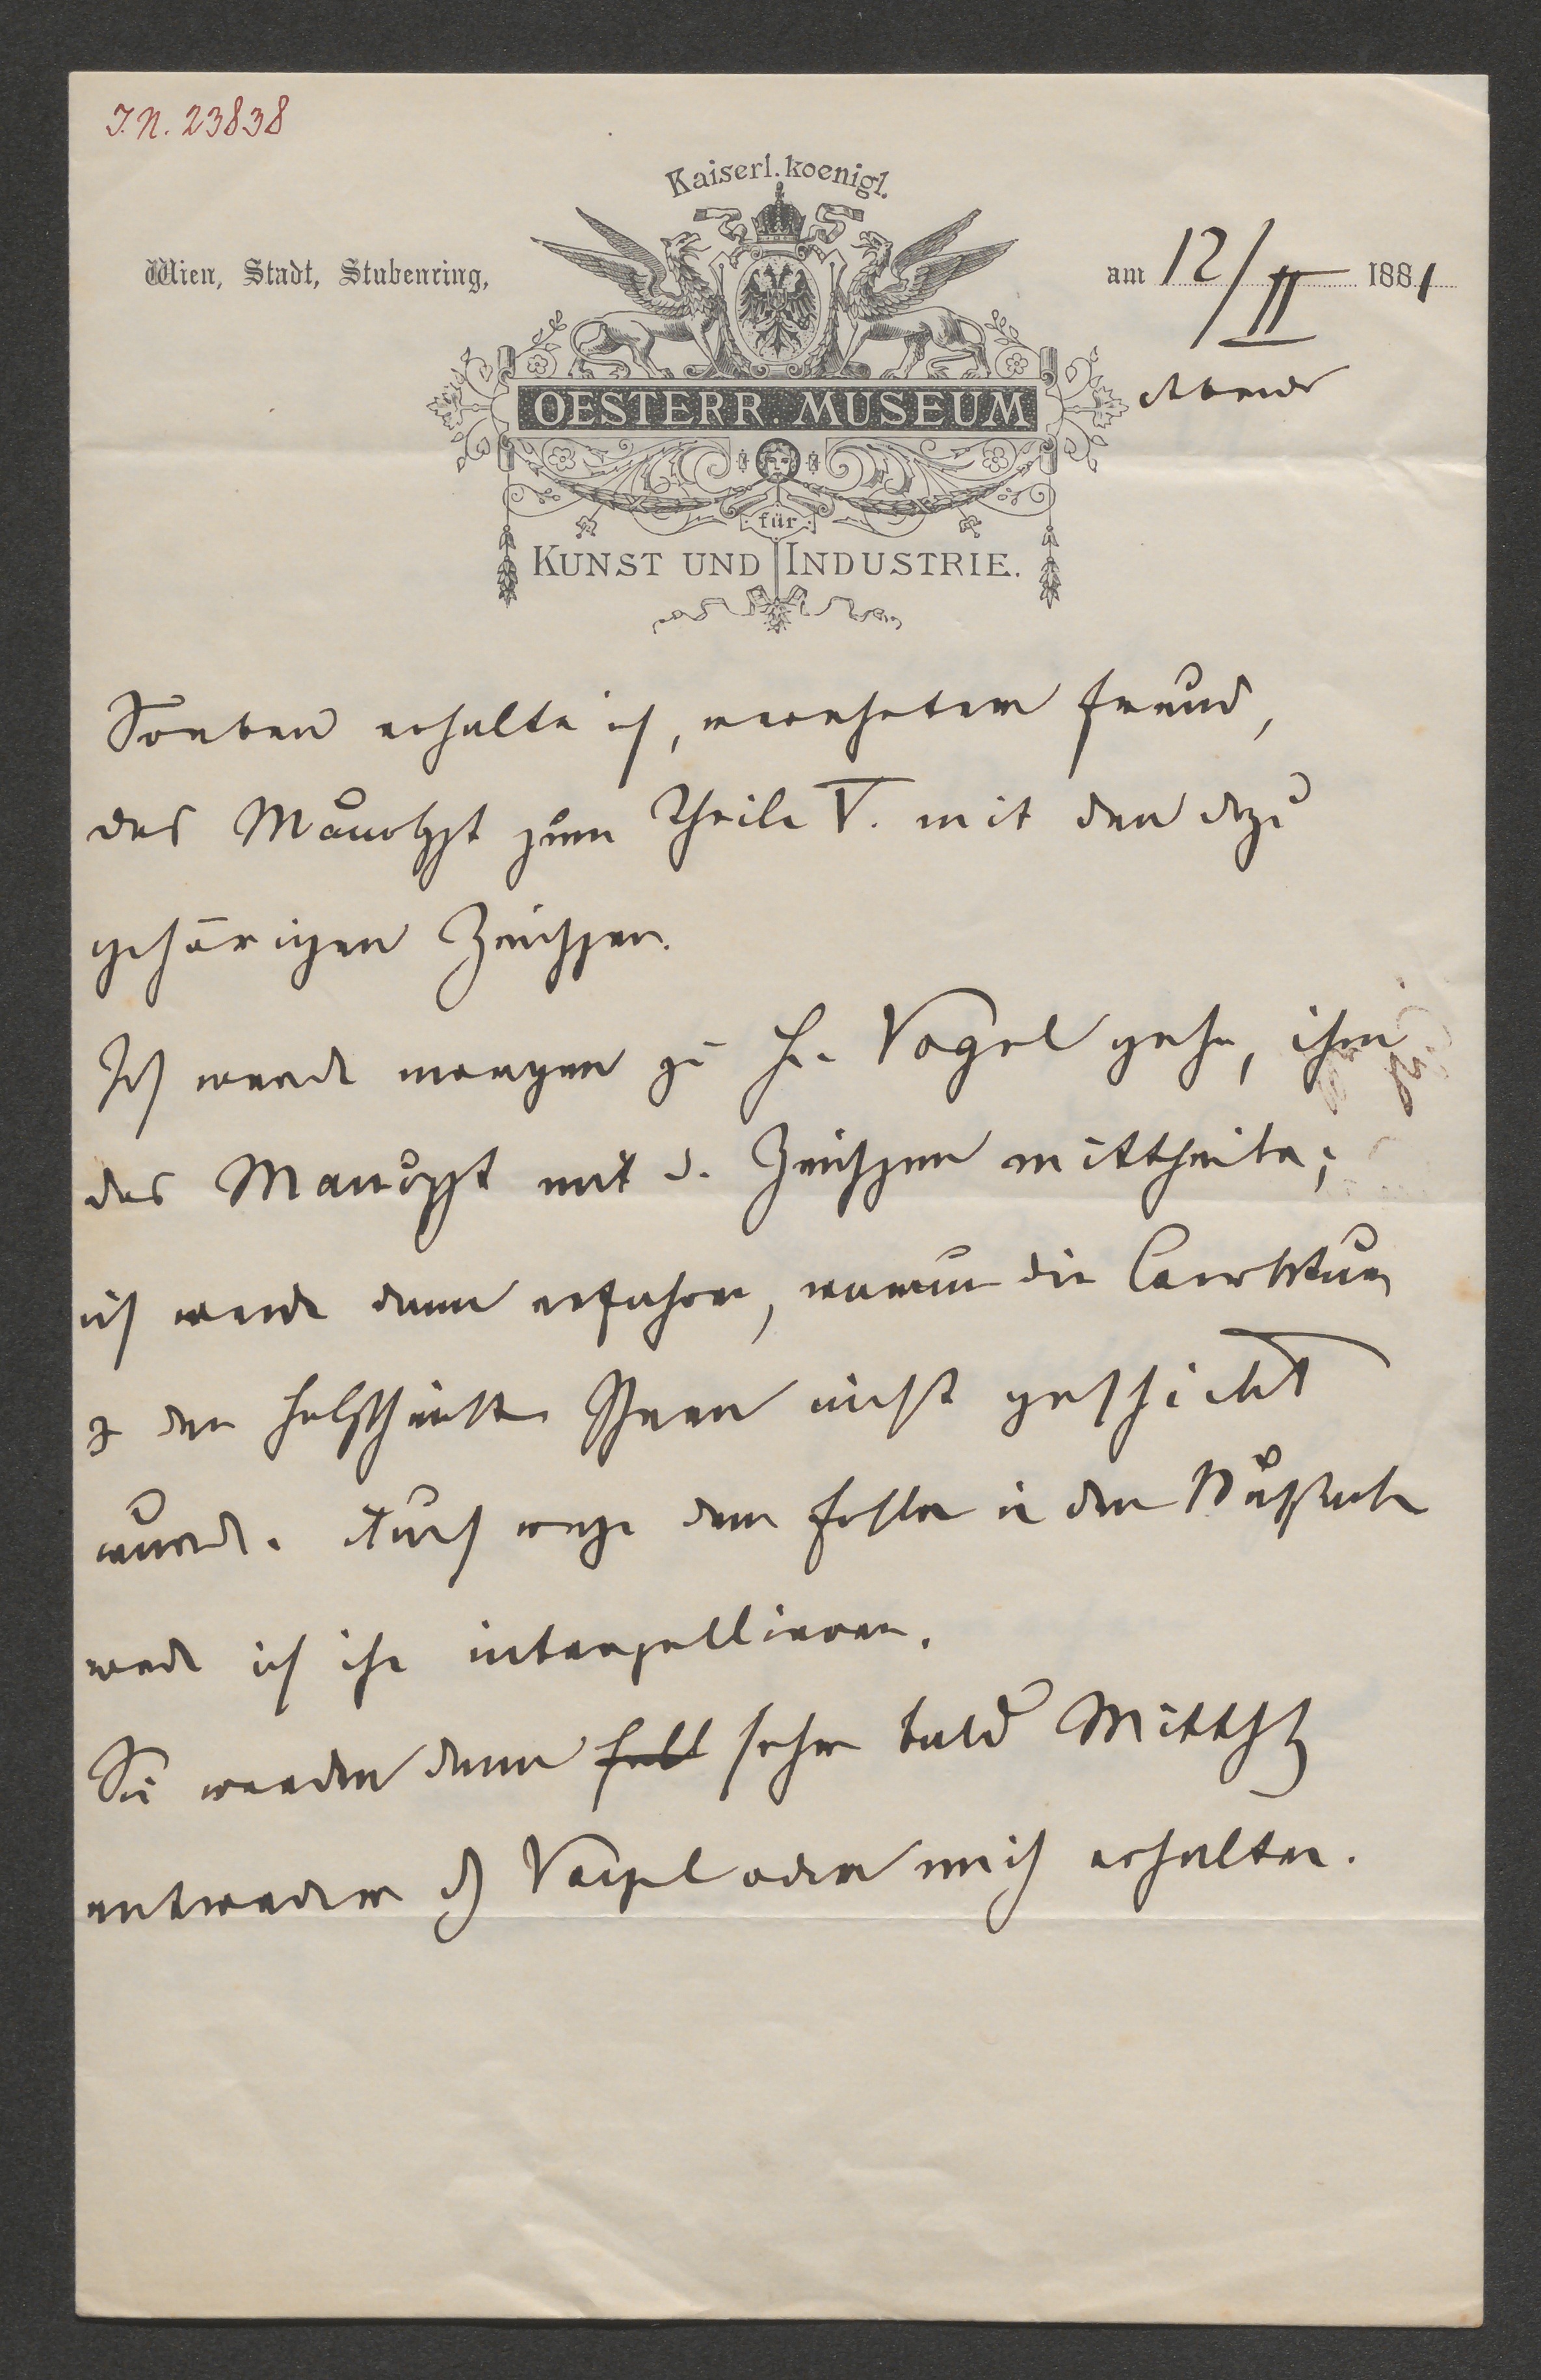 I.N. 23838
Kaiserl. koenigl.
Wien, Stadt, Stubenring,
am 12/II 1881
Abends
OESTERR. MUSEUM
für
KUNST UND INDUSTRIE.
Soeben erhalte ich, verehrter Freund,
das Manuscpt zum Theile V. mit den dazu
gehörigen Zeichngen.
Ich werde morgen zu Hr. Vogel gehen, ihm
das Manuscpt mit d. Zeichngen mittheilen;
ich werde dann erfahren, warum die Correktur
zu den Holzschnitten Ihnen nicht geschickt
wurde. Auch wegen dem Fehler in den
werde ich ihn interpellieren.
Sie werden dann sehr bald Mitthlg
entweder dch Vogel oder mich erhalten.